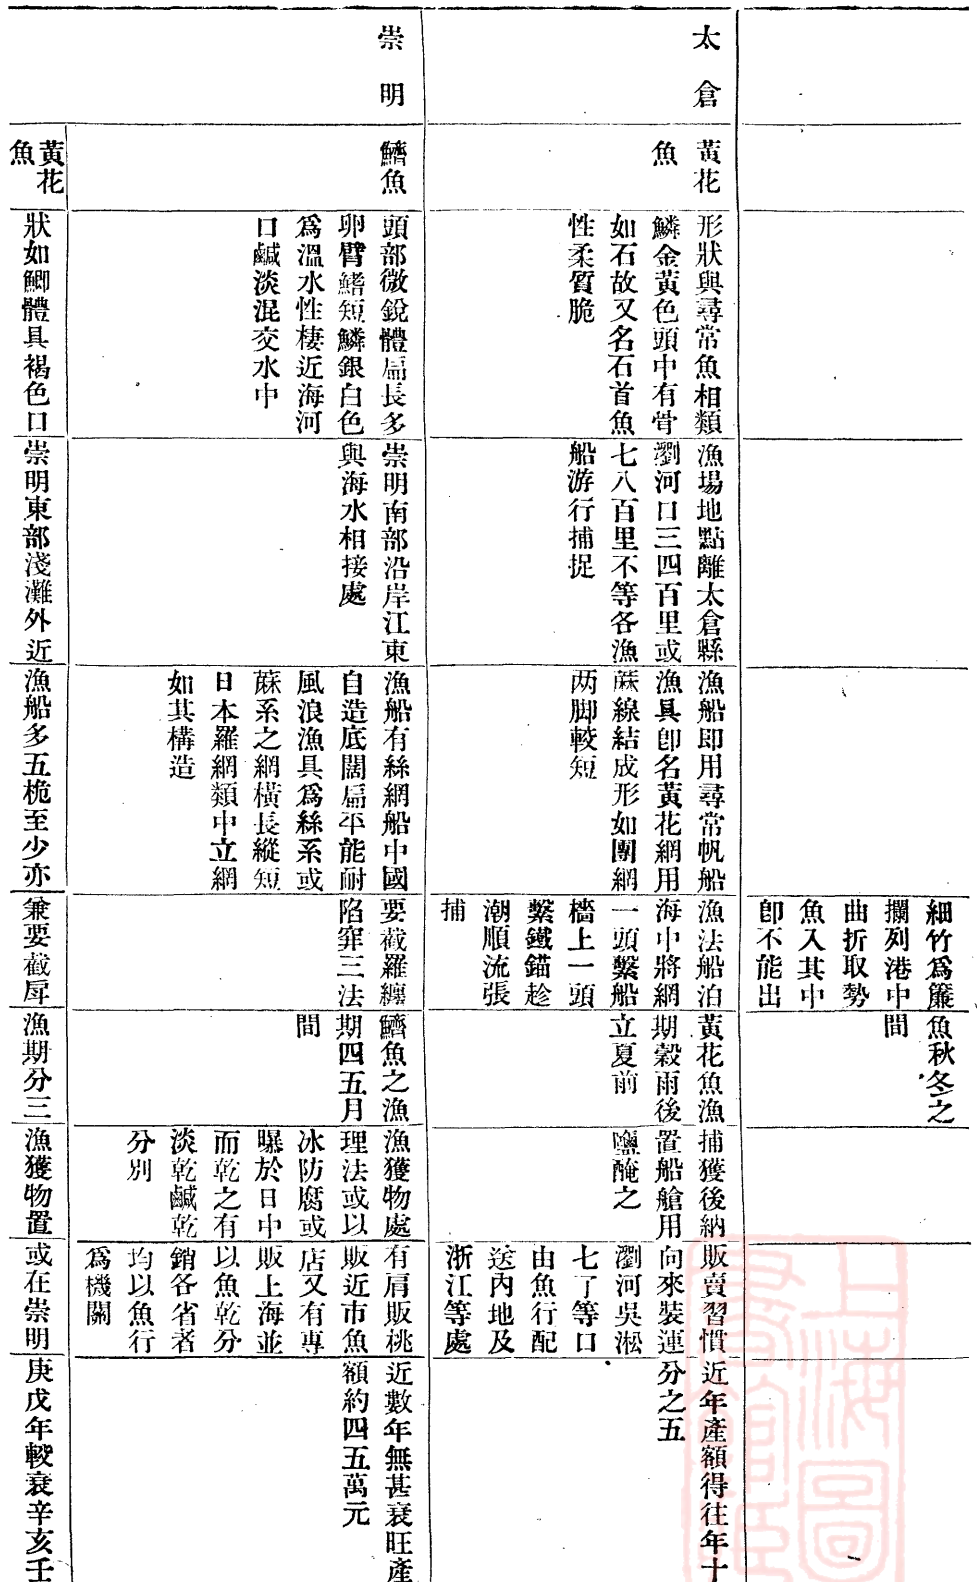 細竹爲簾
攔列港中
曲折取勢
魚入其中
卽不能出
魚秋冬之
間
太倉
黃花
魚
形狀與尋常魚相類
鱗金黃色頭中有骨
如石故又名石首魚
性柔質脆
漁場地點離太倉縣
瀏河口三四百里或
七八百里不等各漁
船游行捕捉
漁船即用尋常帆船
漁具卽名黃花網用
蔴線結成形如圍網
两脚較短
漁法船泊
海中將網
一頭繫船
檣上一頭
繫鐵錨趁
潮順流張
捕
黃花魚漁
期穀雨後
立夏前
捕獲後納
置船艙用
鹽醃之
販賣習慣
向來裝運
瀏河吳淞
七了等口
由魚行配
送內地及
浙江等處
近年產額得往年十
分之五
崇明
鱭魚
頭部微銳體扁長多
卵臂鰭短鱗銀白色
爲溫水性棲近海河
口鹹淡混交水中
崇明南部沿岸江東
與海水相接處
漁船有絲網船中國
自造底闊扁平能耐
風浪漁具爲絲系或
蔴系之網橫長縱短
日本羅網類中立網
如其構造
要截羅纏
陷穽三法
鱭魚之漁
期四五月
間
漁獲物處
理法或以
冰防腐或
曝於日中
而乾之有
淡乾鹹乾
分別
有肩販桃
販近市魚
店又有專
販上海並
以魚乾分
銷各省者
均以魚行
爲機關
近數年無甚衰旺產
額約四五萬元
黃花
魚
狀如鯽體具褐色口
崇明東部淺灘外近
漁船多五桅至少亦
兼要截㞐
漁期分三
漁獲物置
或在崇明
庚戌年較衰辛亥壬
上海圖
書館藏